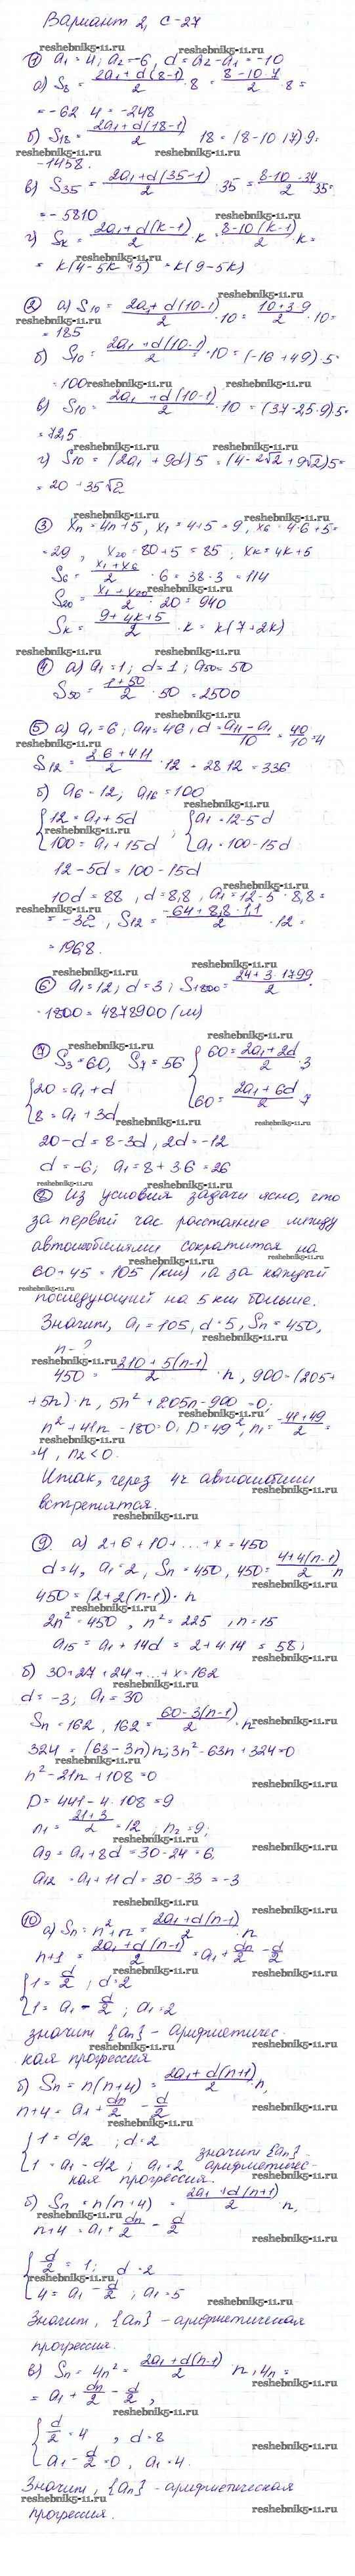 Вариант 2, С-27
① a₁ = 4; a₂ = -6, d = a₂ - a₁ = -10
а) S₈ = (2a₁ + d(8-1))/2 · 8 = (8 - 10·7)/2 · 8 =
= -62 · 4 = -248
б) S₁₈ = (2a₁ + d(18-1))/2 · 18 = (8 - 10·17)9 =
-1458.
в) S₃₅ = (2a₁ + d(35-1))/2 · 35 = (8 - 10·34)/2 · 35 =
= -5810
г) Sₖ = (2a₁ + d(k-1))/2 · k = (8 - 10(k-1))/2 · k =
= k(4 - 5k + 5) = k(9 - 5k)
② а) S₁₀ = (2a₁ + d(10-1))/2 · 10 = (10 + 3·9)/2 · 10 =
= 185
б) S₁₀ = (2a₁ + d(10-1))/2 · 10 = (-16 + 4·9)·5 =
= 100
в) S₁₀ = (2a₁ + d(10-1))/2 · 10 = (37 - 2,5·9)5 =
= 72,5
г) S₁₀ = (2a₁ + 9d)5 = (4 - 2√2 + 9√2)5 =
= 20 + 35√2
③ xₙ = 4n + 5, x₁ = 4 + 5 = 9, x₆ = 4·6 + 5 =
= 29, x₂₀ = 80 + 5 = 85; xₖ = 4k + 5
S₆ = (x₁ + x₆)/2 · 6 = 38·3 = 114
S₂₀ = (x₁ + x₂₀)/2 · 20 = 940
Sₖ = (9 + 4k + 5)/2 · k = k(7 + 2k)
④ а) a₁ = 1; d = 1; a₅₀ = 50
S₅₀ = (1 + 50)/2 · 50 = 2500
⑤ а) a₁ = 6; a₁₁ = 46; d = (a₁₁ - a₁)/10 = 40/10 = 4
S₁₂ = (2·6 + 4·11)/2 · 12 = 28·12 = 336
б) a₆ = 12; a₁₆ = 100
{12 = a₁ + 5d ; {a₁ = 12 - 5d
{100 = a₁ + 15d {a₁ = 100 - 15d
12 - 5d = 100 - 15d
10d = 88, d = 8,8, a₁ = 12 - 5·8,8 =
= -32, S₁₂ = (-64 + 8,8·11)/2 · 12 =
= 196,8.
⑥ a₁ = 12; d = 3; S₁₈₀₀ = (24 + 3·1799)/2 ·
· 1800 = 4878900 (м)
⑦ S₃ = 60, S₇ = 56 {60 = (2a₁ + 2d)/2 · 3
{20 = a₁ + d {60 = (2a₁ + 6d)/2 · 7
{8 = a₁ + 3d
20 - d = 8 - 3d, 2d = -12
d = -6; a₁ = 8 + 3·6 = 26
⑧ Из условия задачи ясно, что
за первый час расстояние между
автомобилями сократится на
60 + 45 = 105 (км), а за каждый
последующий на 5 км больше.
Значит, a₁ = 105, d = 5, Sₙ = 450,
n - ?
450 = (210 + 5(n-1))/2 · n, 900 = (205 +
+ 5n)·n, 5n² + 205n - 900 = 0;
n² + 41n - 180 = 0; D = 49², n₁ = (-41 + 49)/2 =
= 4, n₂ < 0.
Итак, через 4ч автомобили
встретятся.
⑨ а) 2 + 6 + 10 + ... + x = 450
d = 4, a₁ = 2, Sₙ = 450, 450 = (4 + 4(n-1))/2 · n
450 = (2 + 2(n-1))·n
2n² = 450, n² = 225, n = 15
a₁₅ = a₁ + 14d = 2 + 4·14 = 58;
б) 30 + 27 + 24 + ... + x = 162
d = -3; a₁ = 30
Sₙ = 162, 162 = (60 - 3(n-1))/2 · n
324 = (63 - 3n)n; 3n² - 63n + 324 = 0
n² - 21n + 108 = 0
D = 441 - 4·108 = 9
n₁ = (21 + 3)/2 = 12; n₂ = 9;
a₉ = a₁ + 8d = 30 - 24 = 6,
a₁₂ = a₁ + 11d = 30 - 33 = -3
⑩ а) Sₙ = n² + n = (2a₁ + d(n-1))/2 · n
n + 1 = (2a₁ + d(n-1))/2 = a₁ + dn/2 - d/2
{1 = d/2 ; d = 2
{1 = a₁ - d/2 ; a₁ = 2
значит {aₙ} - арифметичес-
кая прогрессия
б) Sₙ = n(n+4) = (2a₁ + d(n+1))/2 · n,
n + 4 = a₁ + dn/2 - d/2
{1 = d/2 ; d = 2
{1 = a₁ - d/2 ; a₁ = 2 значит {aₙ} - арифметичес-
кая прогрессия.
б) Sₙ = n(n+4) = (2a₁ + d(n+1))/2 · n,
n + 4 = a₁ + dn/2 - d/2
{d/2 = 1; d = 2
{4 = a₁ - d/2 ; a₁ = 5
Значит, {aₙ} - арифметическая
прогрессия.
в) Sₙ = 4n² = (2a₁ + d(n-1))/2 · n, 4n =
= a₁ + dn/2 - d/2,
{d/2 = 4, d = 8
{a₁ - d/2 = 0, a₁ = 4.
Значит, {aₙ} - арифметическая
прогрессия.
reshebnik5-11.ru